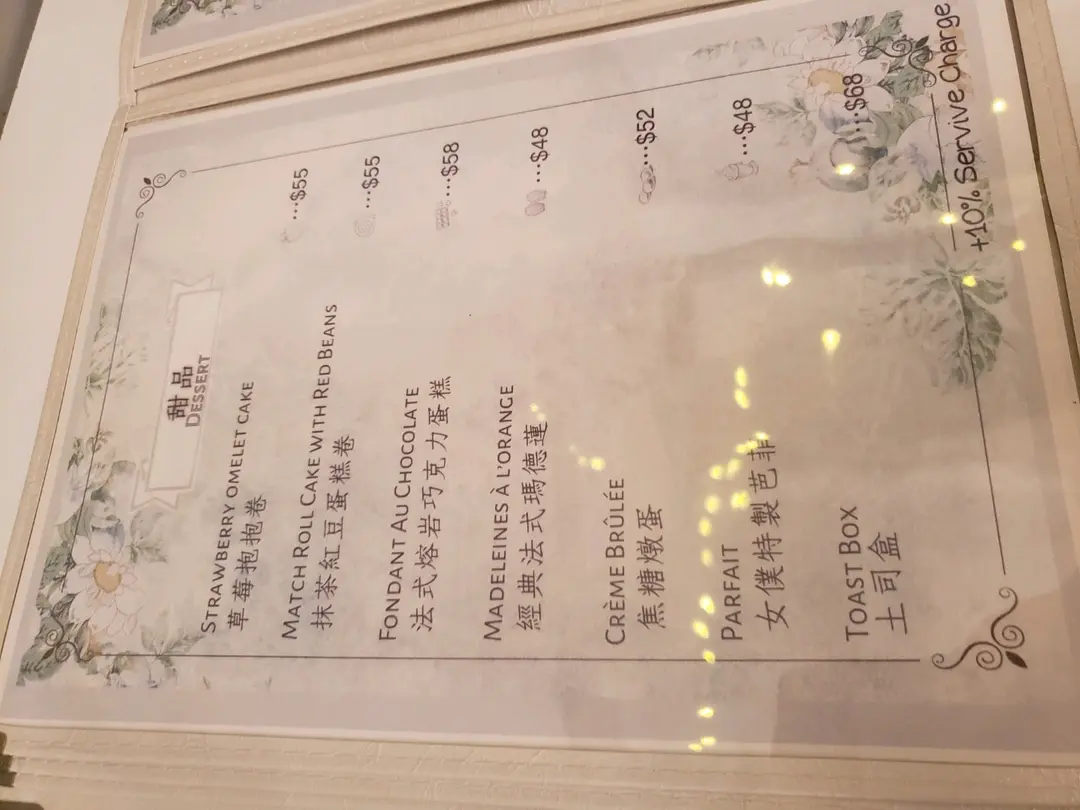 甜品
DESSERT
STRAWBERRY OMELET CAKE ...$55
草莓抱抱卷
MATCH ROLL CAKE WITH RED BEANS ...$55
抹茶紅豆蛋糕卷
FONDANT AU CHOCOLATE ...$58
法式熔岩巧克力蛋糕
MADELEINES À L'ORANGE ...$48
經典法式瑪德蓮
CRÈME BRÛLÉE ...$52
焦糖燉蛋
PARFAIT ...$48
女僕特製芭菲
TOAST BOX ...$68
土司盒
+10% Servive Charge